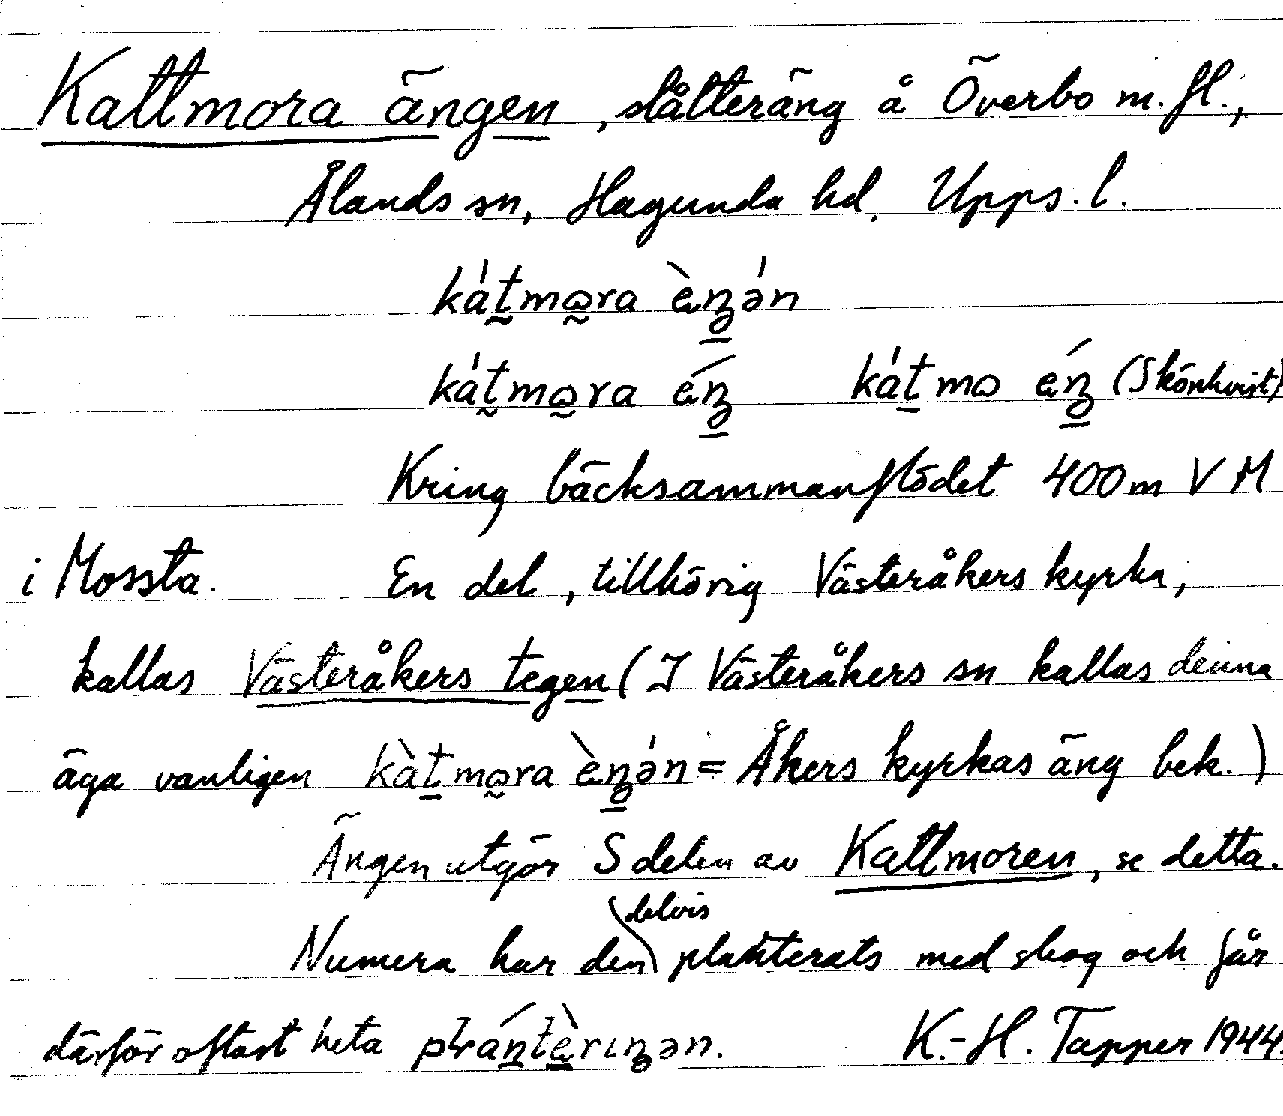 Kattmora ängen, slåtteräng å Överbo m. fl.,
Ålands sn, Hagunda hd, Upps. l.
ká́t̰mo̰ra èŋ̱ə́n
ká́t̰mo̰ra éŋ̱ ká́ṯmo éŋ̱ (Skönkvist)
Kring bäcksammanflödet 400 m V M
i Mossta. En del, tillhörig Västeråkers kyrka,
kallas Västeråkers tegen (I Västeråkers sn kallas denna
äga vanligen kàṯmo̰ra èŋ̱ə́n = Åkers kyrkas äng bek.)
Ängen utgör S delen av Kattmoren, se detta.
Numera har den delvis planterats med skog och får
därför oftast heta
K.-H. Tapper 1944.